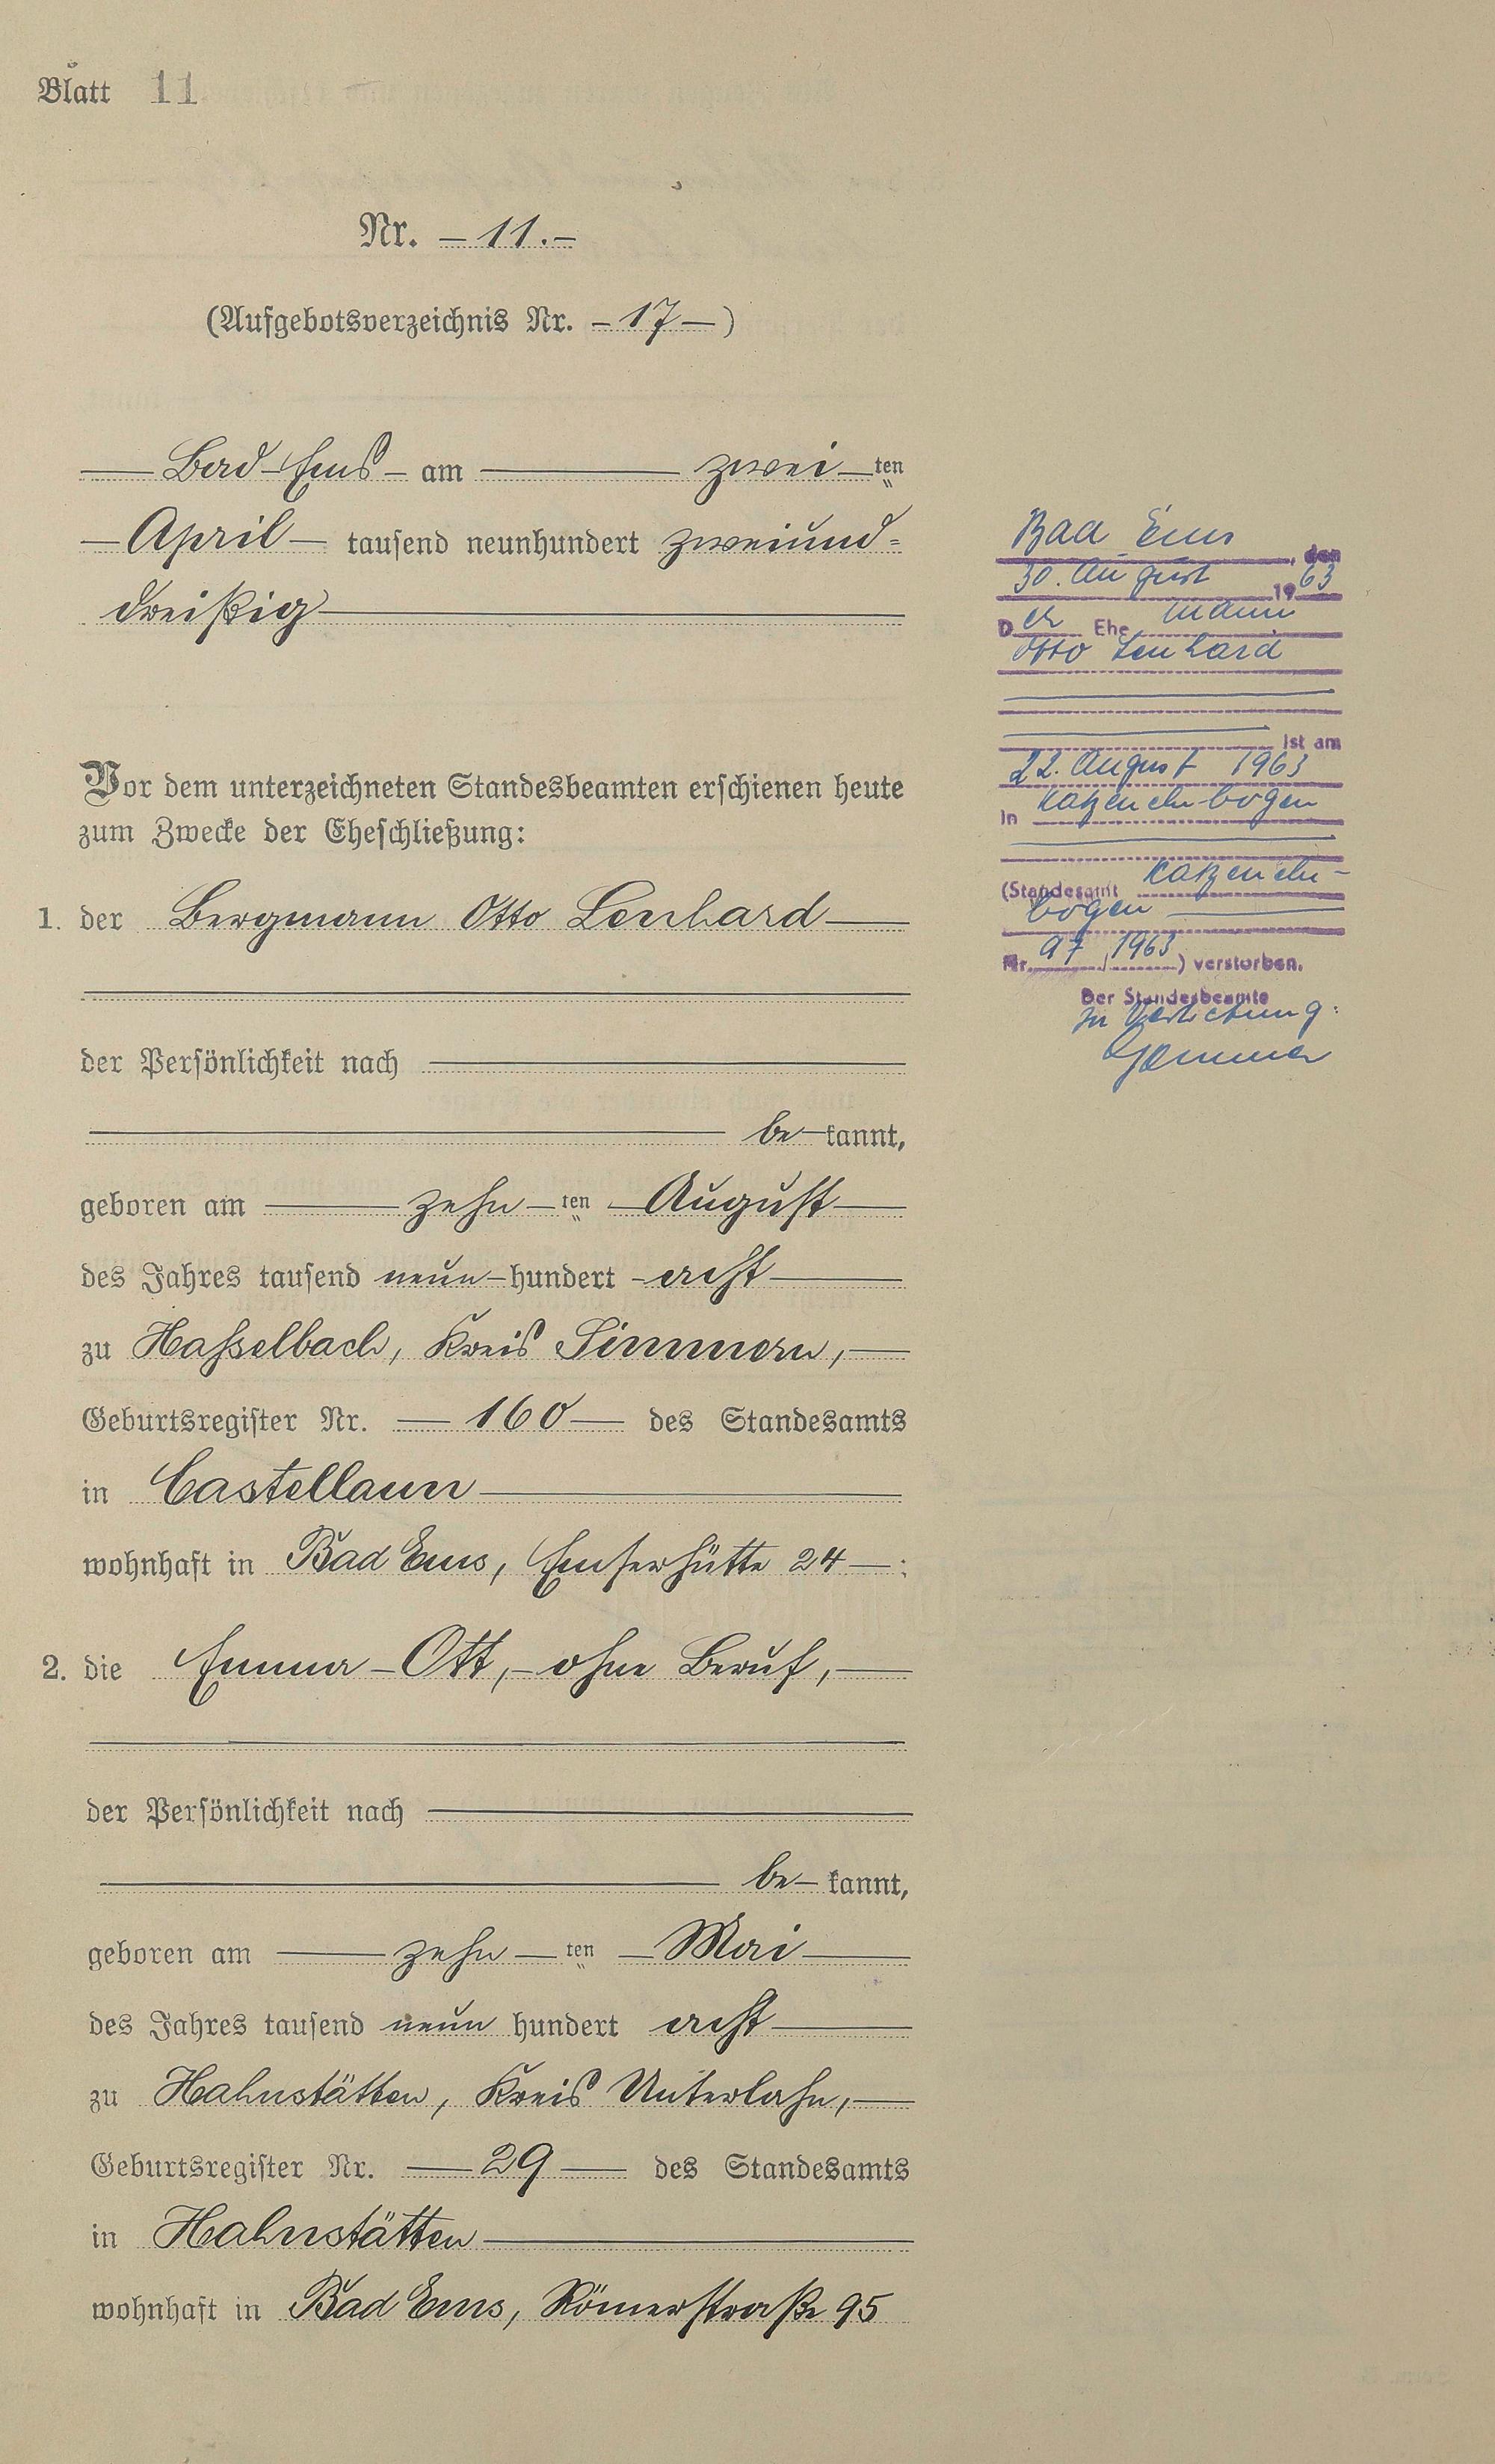 Blatt 11
Nr. – 11. –
(Aufgebotsverzeichnis Nr. – 17 – )
Bad Ems – am zwei ten
– April – tausend neunhundert zweiund=
dreißig
Vor dem unterzeichneten Standesbeamten erschienen heute
zum Zwecke der Eheschließung:
1. der Bergmann Otto Lenhard
der Persönlichkeit nach
be kannt,
geboren am zehn ten August
des Jahres tausend neun hundert acht
zu Haſselbach, Kreis Simmern,
Geburtsregister Nr. 160 des Standesamts
in Castellaun
wohnhaft in Bad Ems, Emserhütte 24 – ;
2. die Emma Ott, ohne Beruf,
der Persönlichkeit nach
be kannt,
geboren am zehn ten Mai
des Jahres tausend neun hundert acht
zu Hahnstätten, Kreis Unterlahn,
Geburtsregister Nr. 29 des Standesamts
in Hahnstätten
wohnhaft in Bad Ems, Römerstraße 95
Bad Ems, den
30. August 1963
Der Ehemann
Otto Lenhard
ist am
22. August 1963
in Katzenelnbogen
(Standesamt Katzeneln-
bogen
Nr. 97/1963) verstorben.
Der Standesbeamte
In Vertretung: